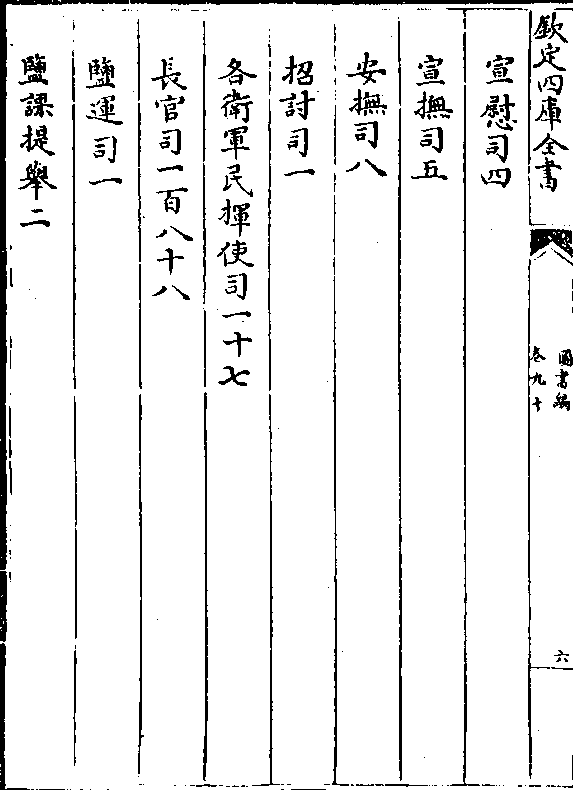 欽定四庫全書
圖書編
卷九十
六
宣慰司四
宣撫司五
安撫司八
招討司一
各衛軍民揮使司一十七
長官司一百八十八
鹽運司一
鹽課提舉二